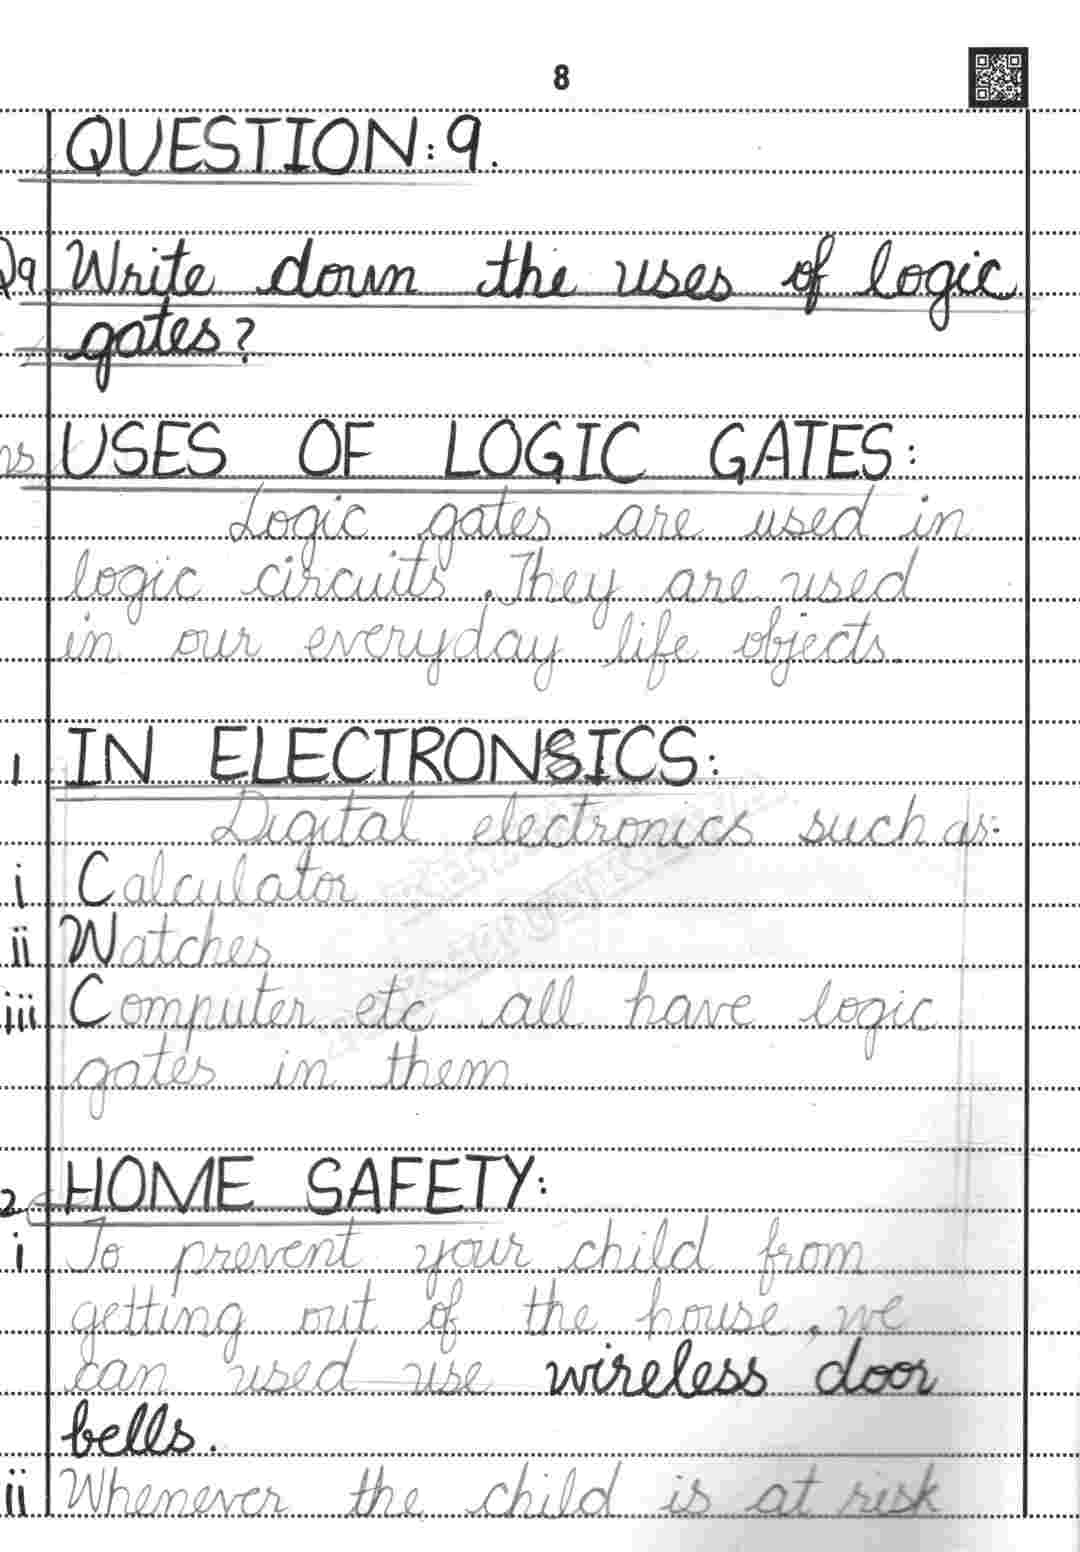 8
QUESTION:9.
Q9 Write down the uses of logic
gates?
ns USES OF LOGIC GATES:
Logic gates are used in
logic circuits. They are used
in our everyday life objects.
1 IN ELECTRONICS:
Digital electronics such as:
i Calculator
ii Watches
iii Computer etc all have logic
gates in them
2 HOME SAFETY:
i To prevent your child from
getting out of the house, we
can used use wireless door
bells.
ii Whenever the child is at risk